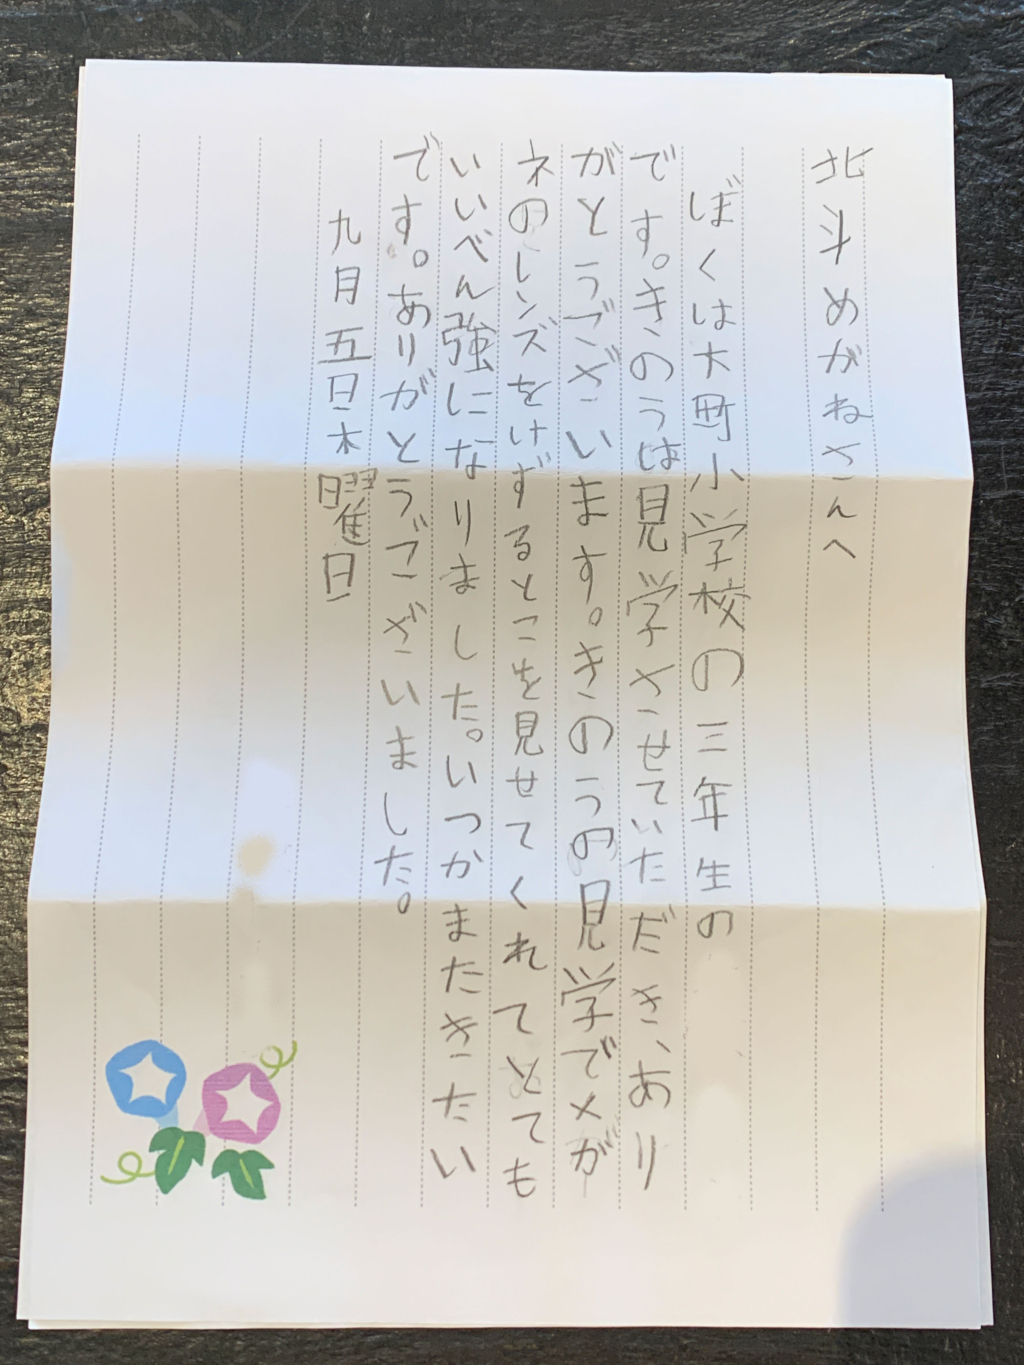 北斗めがねさんへ
ぼくは大町小学校の三年生の
です。きのうは見学させていただき、あり
がとうございます。きのうの見学でメガ
ネのレンズをけずるとこを見せてくれてとても
いいべん強になりました。いつかまたきたい
です。ありがとうございました。
九月五日木曜日